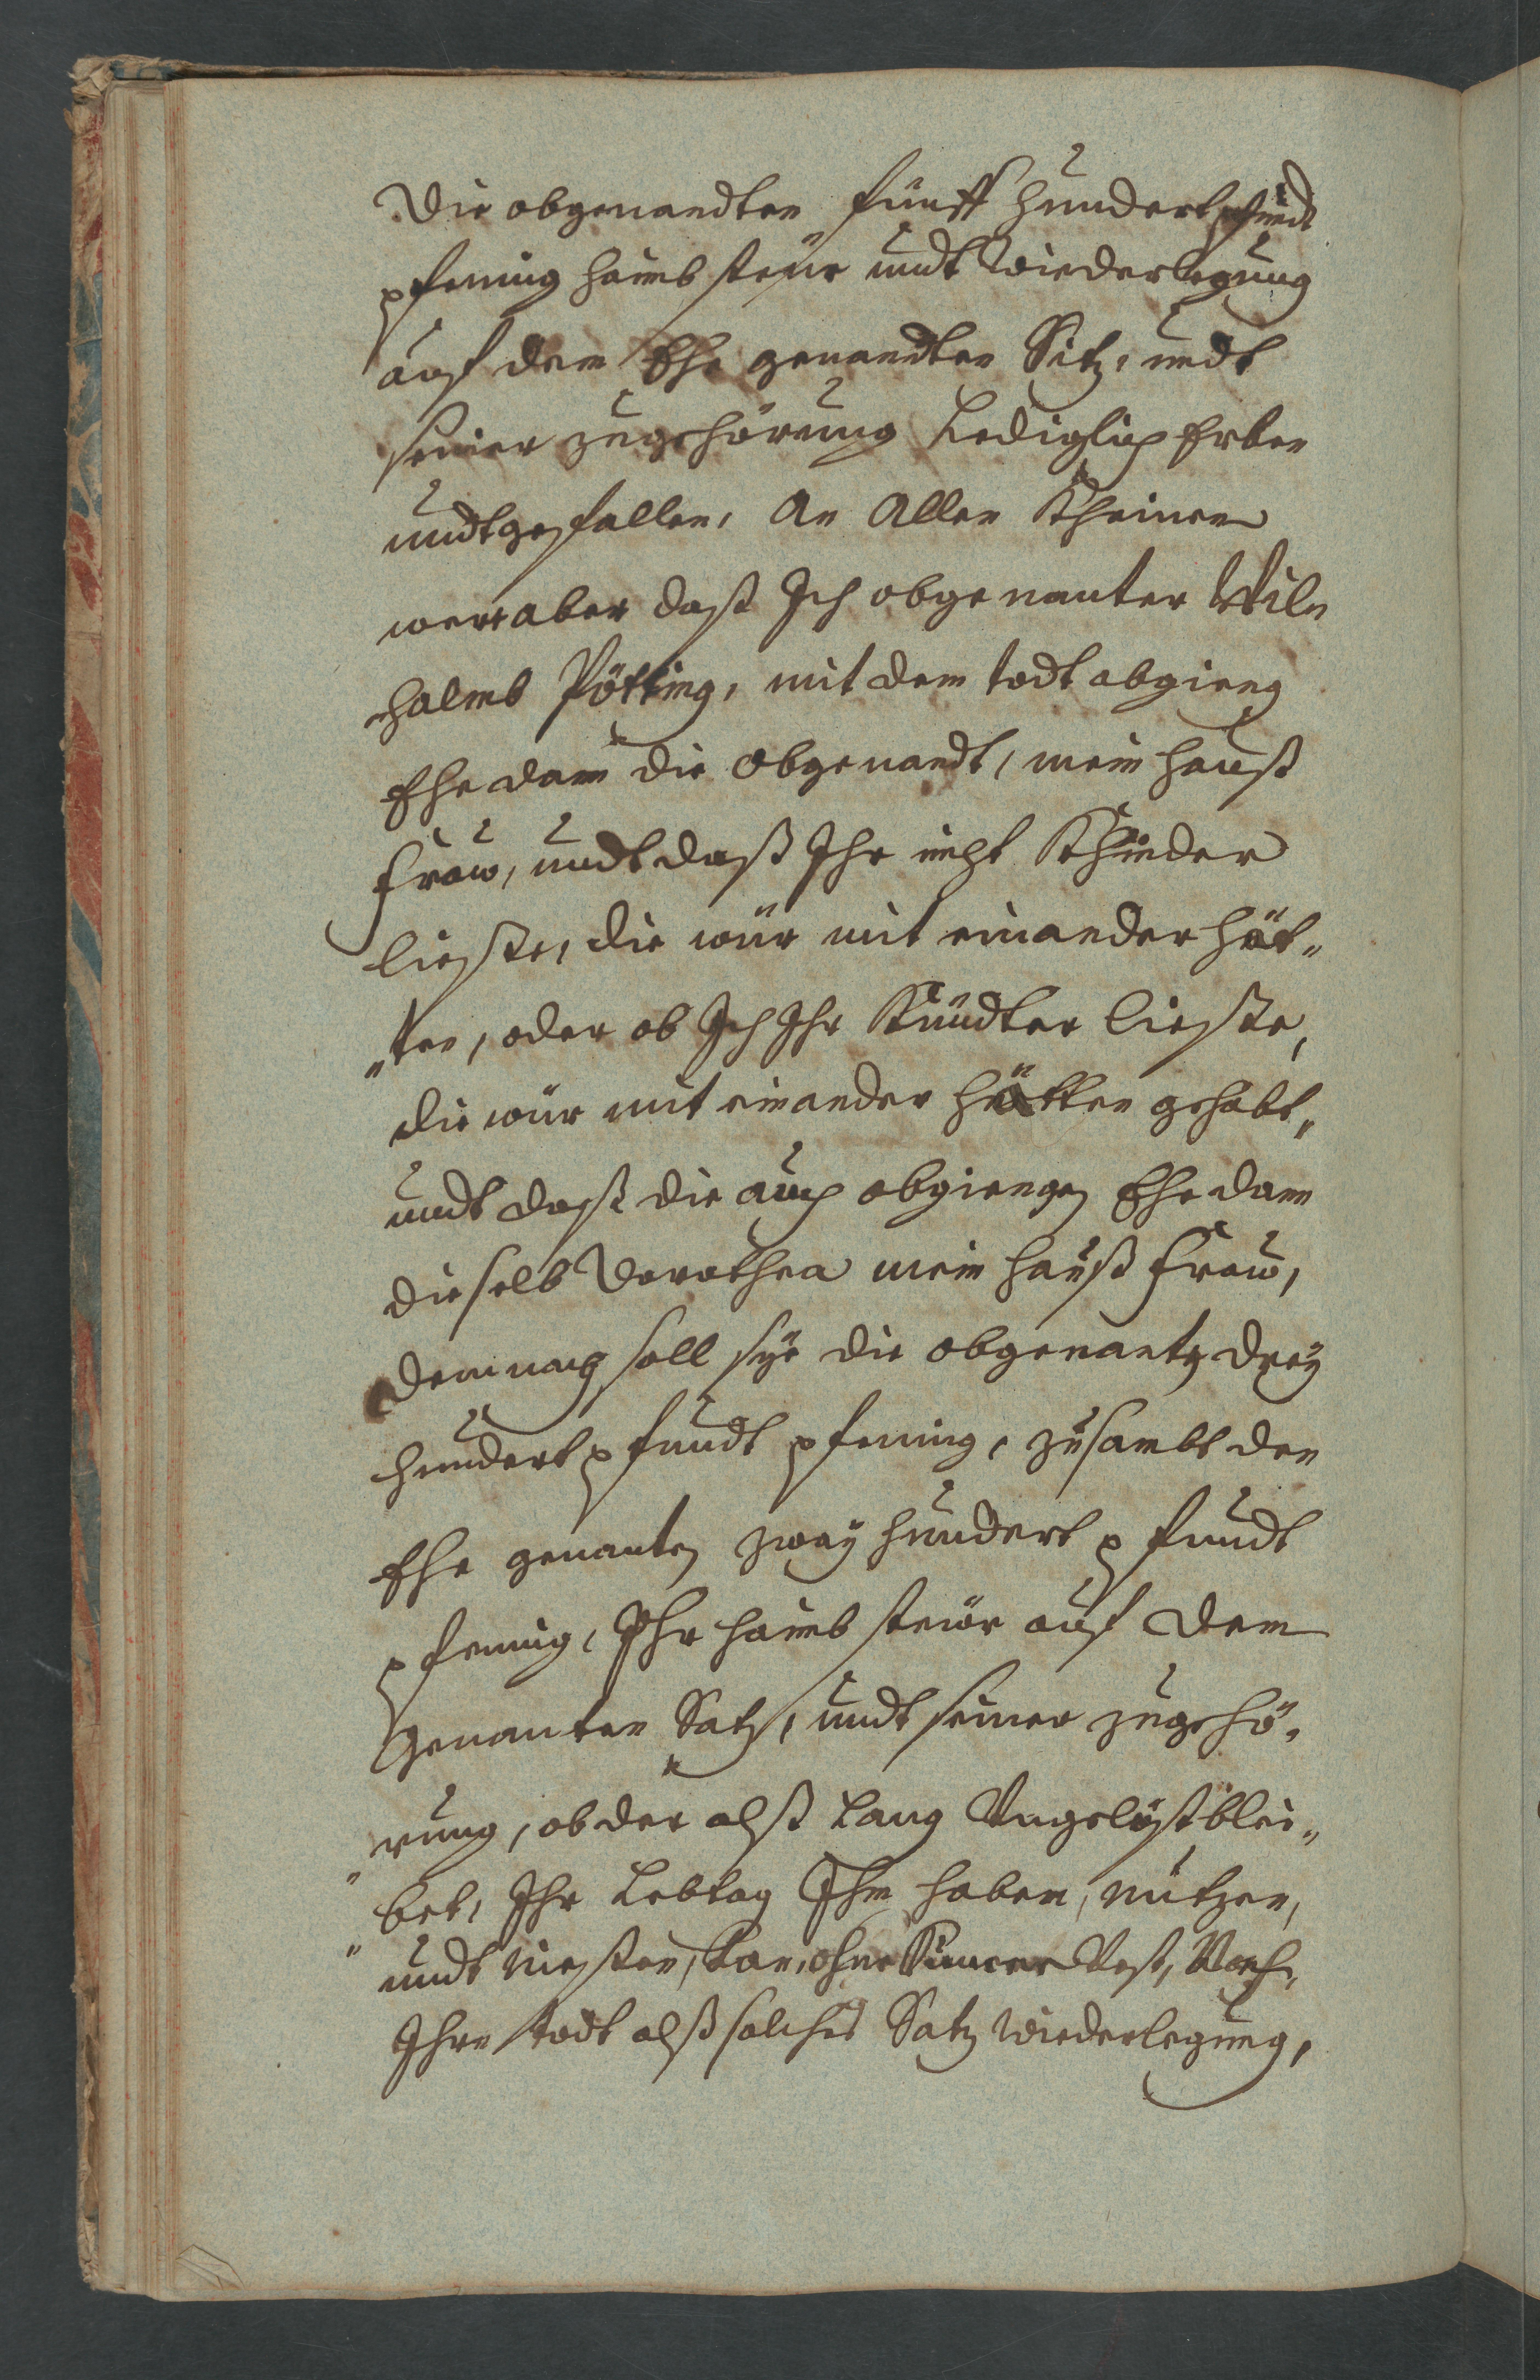 Die obgenandten fünff hundert pfundt
pfening haimb steür undt Wiederlegung
auf dem Ehe genandten Sitz, undt
seiner zugehörung Lediglich Erben
undt gefallen, An Allen Kheinen
were aber daß Ich obgenanter Wil„
halmb Pötting, mit dem todt abgieng
Ehe dann die obgenandt, mein hauß
fraw, undt daß Ihr nicht Khinder
lieste, die wür mit einander hät„
„ten, oder ob Ich Ihr Kündter lieste,
die wür mit einander hätten gehabt„
undt daß die auch abgiengen Ehe dann
dieselb Dorothea mein hauß fraw,
demnach soll sye die obgenanten drey
hundert pfundt pfening, zusambt den
Ehe genanten zway hundert pfundt
pfening, Ihr haimb steür auf dem
genanten Satz, undt seiner zugehö„
rung, ob der alß Lang Ungelöst blei„
„bet, Ihr Lebtag Ihn haben, nutzen,
„undt Niesten, ohne Vest, Nach
Ihren todt alß solches Satz Wiederlegung,